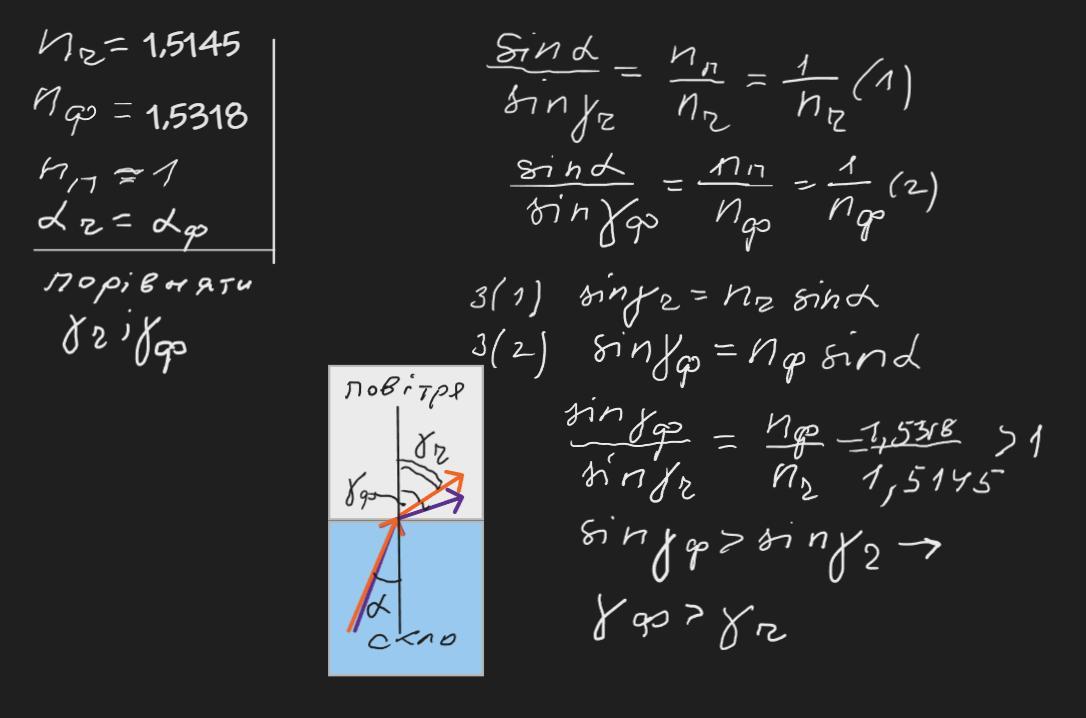 nч = 1,5145
nф = 1,5318
nп ≈ 1
αч = αф
порівняти
γч і γф
sinα/sinγч = nп/nч = 1/nч (1)
sinα/sinγф = nп/nф = 1/nф (2)
З(1) sinγч = nч sinα
З(2) sinγф = nф sinα
sinγф/sinγч = nф/nч = 1,5318/1,5145 > 1
sinγф > sinγч →
γф > γч
повітря
γч
γф
α
скло